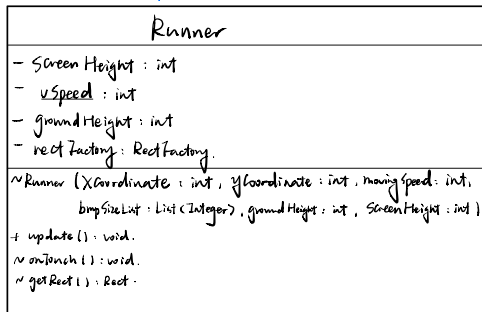 Runner
- screenHeight : int
- vSpeed : int
- groundHeight : int
- rectFactory : RectFactory.
~ Runner (xCoordinate : int, yCoordinate : int, movingSpeed : int,
bmpSizeList : List<Integer>, groundHeight : int, screenHeight : int)
+ update() : void.
~ onTouch() : void.
~ getRect() : Rect.